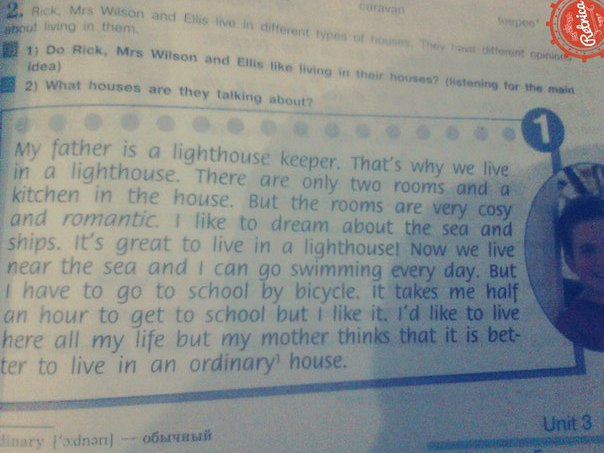 caravan
teepee
2. Rick, Mrs Wilson and Ellis live in different types of houses. They have different opinions
about living in them.
1) Do Rick, Mrs Wilson and Ellis like living in their houses? (listening for the main
idea)
2) What houses are they talking about?
1
My father is a lighthouse keeper. That's why we live
in a lighthouse. There are only two rooms and a
kitchen in the house. But the rooms are very cosy
and romantic. I like to dream about the sea and
ships. It's great to live in a lighthouse! Now we live
near the sea and I can go swimming every day. But
I have to go to school by bicycle. It takes me half
an hour to get to school but I like it. I'd like to live
here all my life but my mother thinks that it is bet-
ter to live in an ordinary¹ house.
Unit 3
dinary ['ɔːdnərɪ] — обычный
Retrica